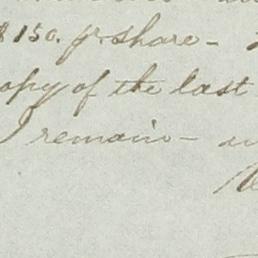 $150. pr share -
opy of the last
I remain -